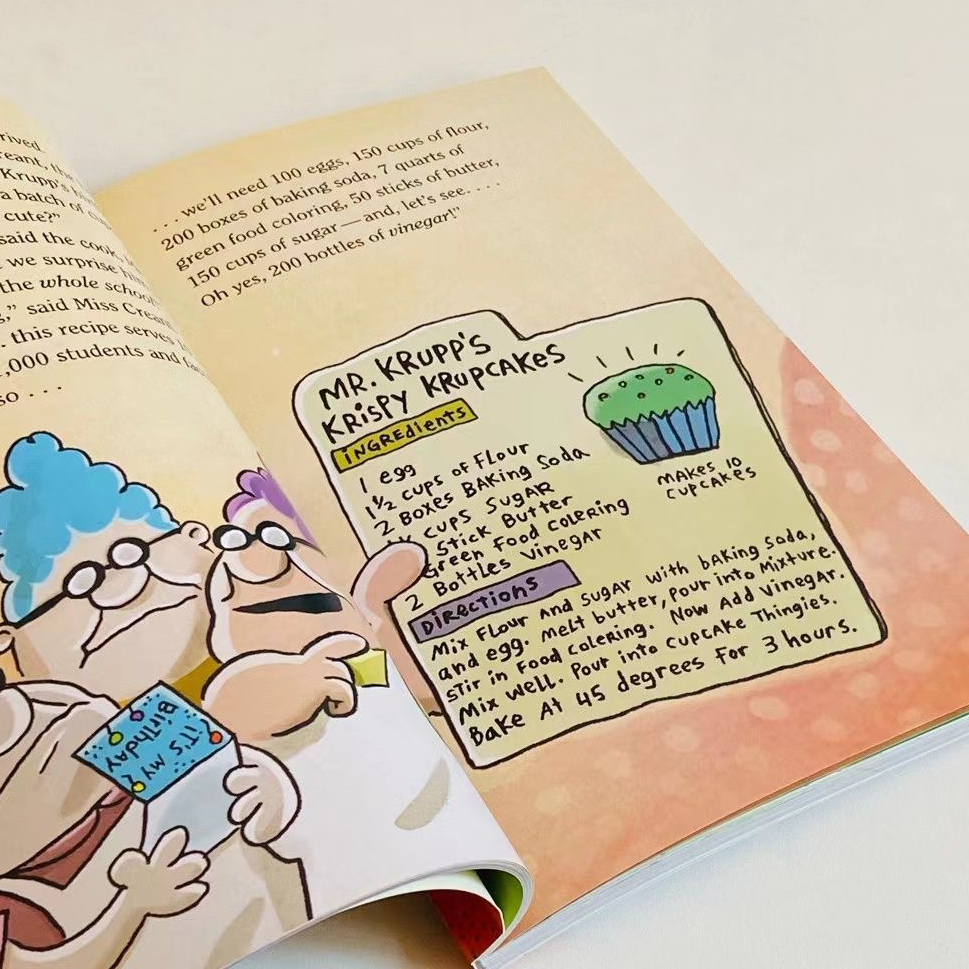 rived
reant, the
Krupp's
a batch of
cute?"
said the cook,
we surprise
the whole school
," said Miss Creant
. this recipe serves
,000 students and
so . . .
. . . we'll need 100 eggs, 150 cups of flour,
200 boxes of baking soda, 7 quarts of
green food coloring, 50 sticks of butter,
150 cups of sugar—and, let's see. . . .
Oh yes, 200 bottles of vinegar!"
MR. KRUPP'S
KRiSPY KRUPCAKES
iNGREdiENTS
1 egg
1 1/2 cups of Flour
2 Boxes Baking Soda
cups Sugar
Stick Butter
Green Food Colering
2 Bottles Vinegar
MAKES 10
CUPCAKES
DiRECTiONS
Mix Flour and Sugar with baking soda,
and egg. Melt butter, pour into Mixture.
Stir in Food Colering. Now Add Vinegar.
Mix well. Pour into Cupcake Thingies.
Bake At 45 degrees For 3 hours.
iT'S MY
BiRTHDAY